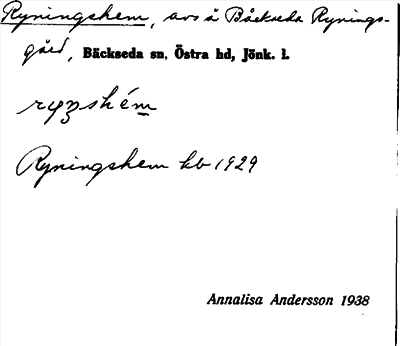 Ryningshem, avs å Bäckseda Rynings-
gård, Bäckseda sn, Östra hd, Jönk. l.
ryŋshém
Ryningshem kb 1929
Annalisa Andersson 1938